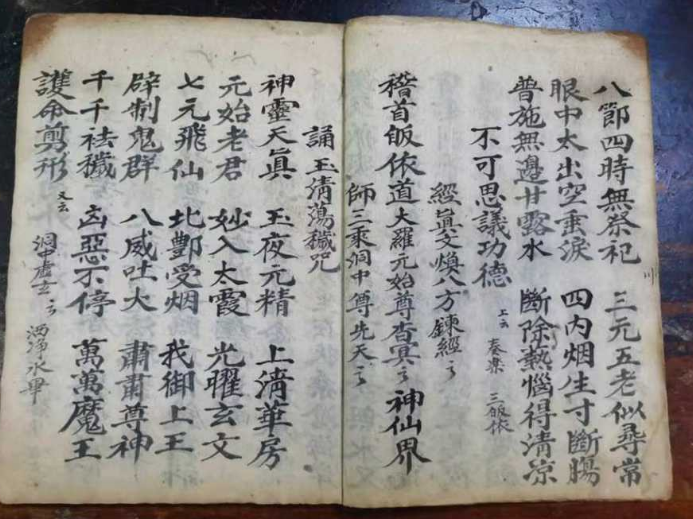 八節四時無祭祀 三元五老似尋常
眼中太出空垂淚 四內烟生寸斷腸
普施無邊甘露水 斷除熱惱得清凉
不可思議功德 上云 奏樂 三皈依
經眞文煥八方鍊經々
稽首皈依道大羅元始尊杳冥々神仙界
師三乘洞中尊先天々
誦玉清蕩穢咒
神靈天眞 玉夜元精 上清華房
元始老君 妙入太霞 光曜玄文
七元飛仙 北酆受烟 我御上王
辟制鬼群 八威吐火 肅肅尊神
千千祛穢 凶惡不停 萬萬魔王
護命剪形 又云 洞中虛玄々 洒淨水畢